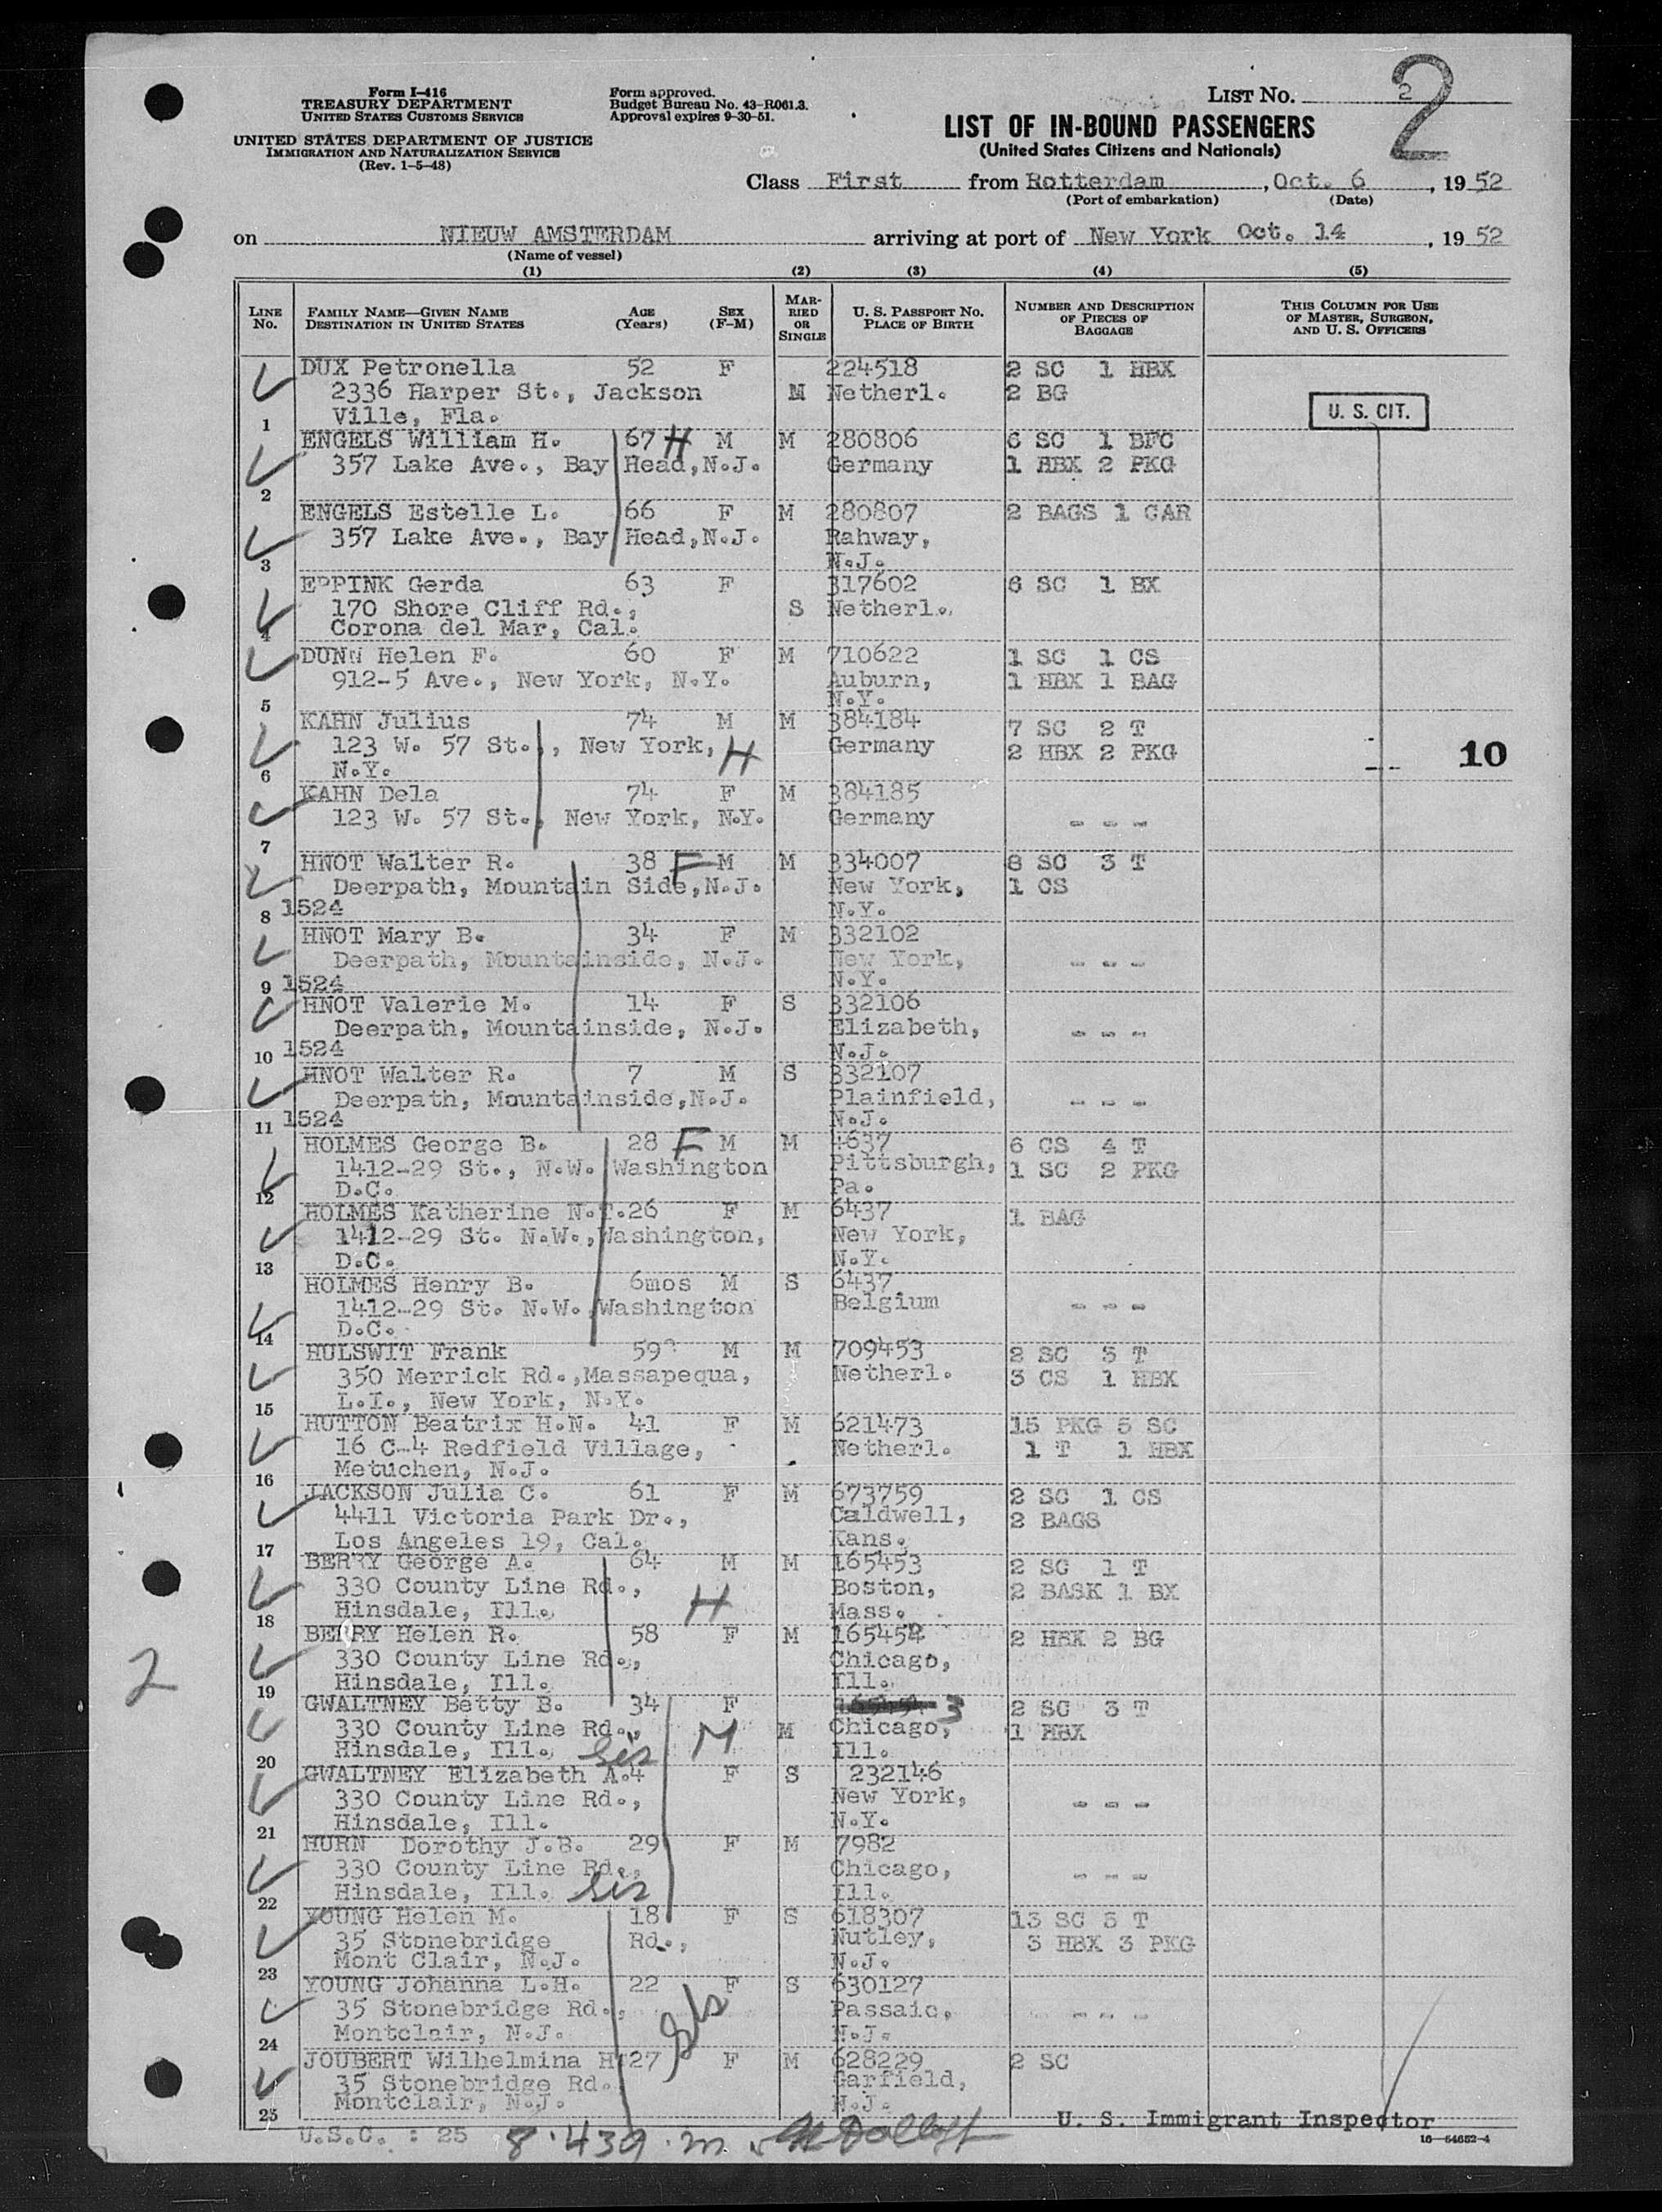 Form I-416
TREASURY DEPARTMENT
UNITED STATES CUSTOMS SERVICE
UNITED STATES DEPARTMENT OF JUSTICE
IMMIGRATION AND NATURALIZATION SERVICE
(Rev. 1-5-48)
Form approved.
Budget Bureau No. 43-R061.3.
Approval expires 9-30-51.
LIST NO. 2
2
LIST OF IN-BOUND PASSENGERS
(United States Citizens and Nationals)
Class First from Rotterdam, Oct. 6, 1952
(Port of embarkation) (Date)
on NIEUW AMSTERDAM arriving at port of New York Oct. 14, 1952
(Name of vessel)
(1) (2) (3) (4) (5)
LINE No.
FAMILY NAME—GIVEN NAME
DESTINATION IN UNITED STATES
AGE (Years)
SEX (F-M)
MARRIED OR SINGLE
U. S. PASSPORT NO.
PLACE OF BIRTH
NUMBER AND DESCRIPTION OF PIECES OF BAGGAGE
THIS COLUMN FOR USE OF MASTER, SURGEON, AND U. S. OFFICERS
DUX Petronella 52 F 224518 2 SC 1 HBX
2336 Harper St., Jackson M Netherl. 2 BG
U. S. CIT.
1 Ville, Fla.
ENGELS William H. 67 H M M 280806 6 SC 1 BFC
357 Lake Ave., Bay Head, N.J. Germany 1 HBX 2 PKG
2
ENGELS Estelle L. 66 F M 280807 2 BAGS 1 CAR
357 Lake Ave., Bay Head, N.J. Rahway,
3 N.J.
EPPINK Gerda 63 F 317602 6 SC 1 BX
170 Shore Cliff Rd., S Netherl.
4 Corona del Mar, Cal.
DUNN Helen F. 60 F M 710622 1 SC 1 CS
912-5 Ave., New York, N.Y. Auburn, 1 HBX 1 BAG
5 N.Y.
KAHN Julius 74 M M 384184 7 SC 2 T
123 W. 57 St., New York, H Germany 2 HBX 2 PKG
10
6 N.Y.
KAHN Dela 74 F M 384185
123 W. 57 St., New York, N.Y. Germany - - -
7
HNOT Walter R. 38 F M M 334007 8 SC 3 T
Deerpath, Mountain Side, N.J. New York, 1 CS
8 1524 N.Y.
HNOT Mary B. 34 F M 332102
Deerpath, Mountainside, N.J. New York, - - -
9 1524 N.Y.
HNOT Valerie M. 14 F S 332106
Deerpath, Mountainside, N.J. Elizabeth, - - -
10 1524 N.J.
HNOT Walter R. 7 M S 332107
Deerpath, Mountainside, N.J. Plainfield, - - -
11 1524 N.J.
HOLMES George B. 28 F M M 4637 6 CS 4 T
1412-29 St., N.W. Washington Pittsburgh, 1 SC 2 PKG
12 D.C. Pa.
HOLMES Katherine N.T. 26 F M 6437 1 BAG
1412-29 St. N.W., Washington, New York,
13 D.C. N.Y.
HOLMES Henry B. 6mos M S 6437
1412-29 St. N.W., Washington Belgium - - -
14 D.C.
HULSWIT Frank 59 M M 709453 2 SC 5 T
350 Merrick Rd., Massapequa, Netherl. 3 CS 1 HBX
15 L.I., New York, N.Y.
HUTTON Beatrix H.N. 41 F M 621473 15 PKG 5 SC
16 C-4 Redfield Village, Netherl. 1 T 1 HBX
16 Metuchen, N.J.
JACKSON Julia C. 61 F M 673759 2 SC 1 CS
4411 Victoria Park Dr., Caldwell, 2 BAGS
17 Los Angeles 19, Cal. Kans.
BERRY George A. 64 M M 165453 2 SC 1 T
330 County Line Rd., H Boston, 2 BASK 1 BX
18 Hinsdale, Ill. Mass.
BERRY Helen R. 58 F M 165454 2 HBX 2 BG
330 County Line Rd., Chicago,
19 Hinsdale, Ill. Ill.
2
GWALTNEY Betty B. 34 F 3 2 SC 3 T
330 County Line Rd., M M Chicago, 1 HBX
20 Hinsdale, Ill. Sis Ill.
GWALTNEY Elizabeth A. 4 F S 232146
330 County Line Rd., New York, - - -
21 Hinsdale, Ill. N.Y.
HURN Dorothy J.B. 29 F M 7982
330 County Line Rd., Chicago, - - -
22 Hinsdale, Ill. Sis Ill.
YOUNG Helen M. 18 F S 618307 13 SC 5 T
35 Stonebridge Rd., Nutley, 3 HBX 3 PKG
23 Mont Clair, N.J. N.J.
YOUNG Johanna L.H. 22 F S 630127
35 Stonebridge Rd., Sis Passaic, - - -
24 Montclair, N.J. N.J.
JOUBERT Wilhelmina H 27 F M 628229 2 SC
35 Stonebridge Rd. Garfield,
25 Montclair, N.J. N.J.
U. S. Immigrant Inspector
U.S.C. : 25 8.439.m
16—54652-4